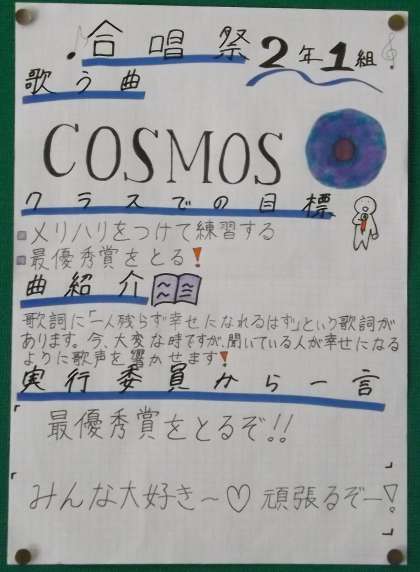 合唱祭 2年1組
歌う曲
COSMOS
クラスでの目標
メリハリをつけて練習する
最優秀賞をとる!
曲紹介
歌詞に「一人残らず幸せになれるはず」という歌詞が
あります。今、大変な時ですが、聞いている人が幸せになる
ように歌声を響かせます!
実行委員から一言
「最優秀賞をとるぞ!!」
「みんな大好き〜♡ 頑張るぞー!」